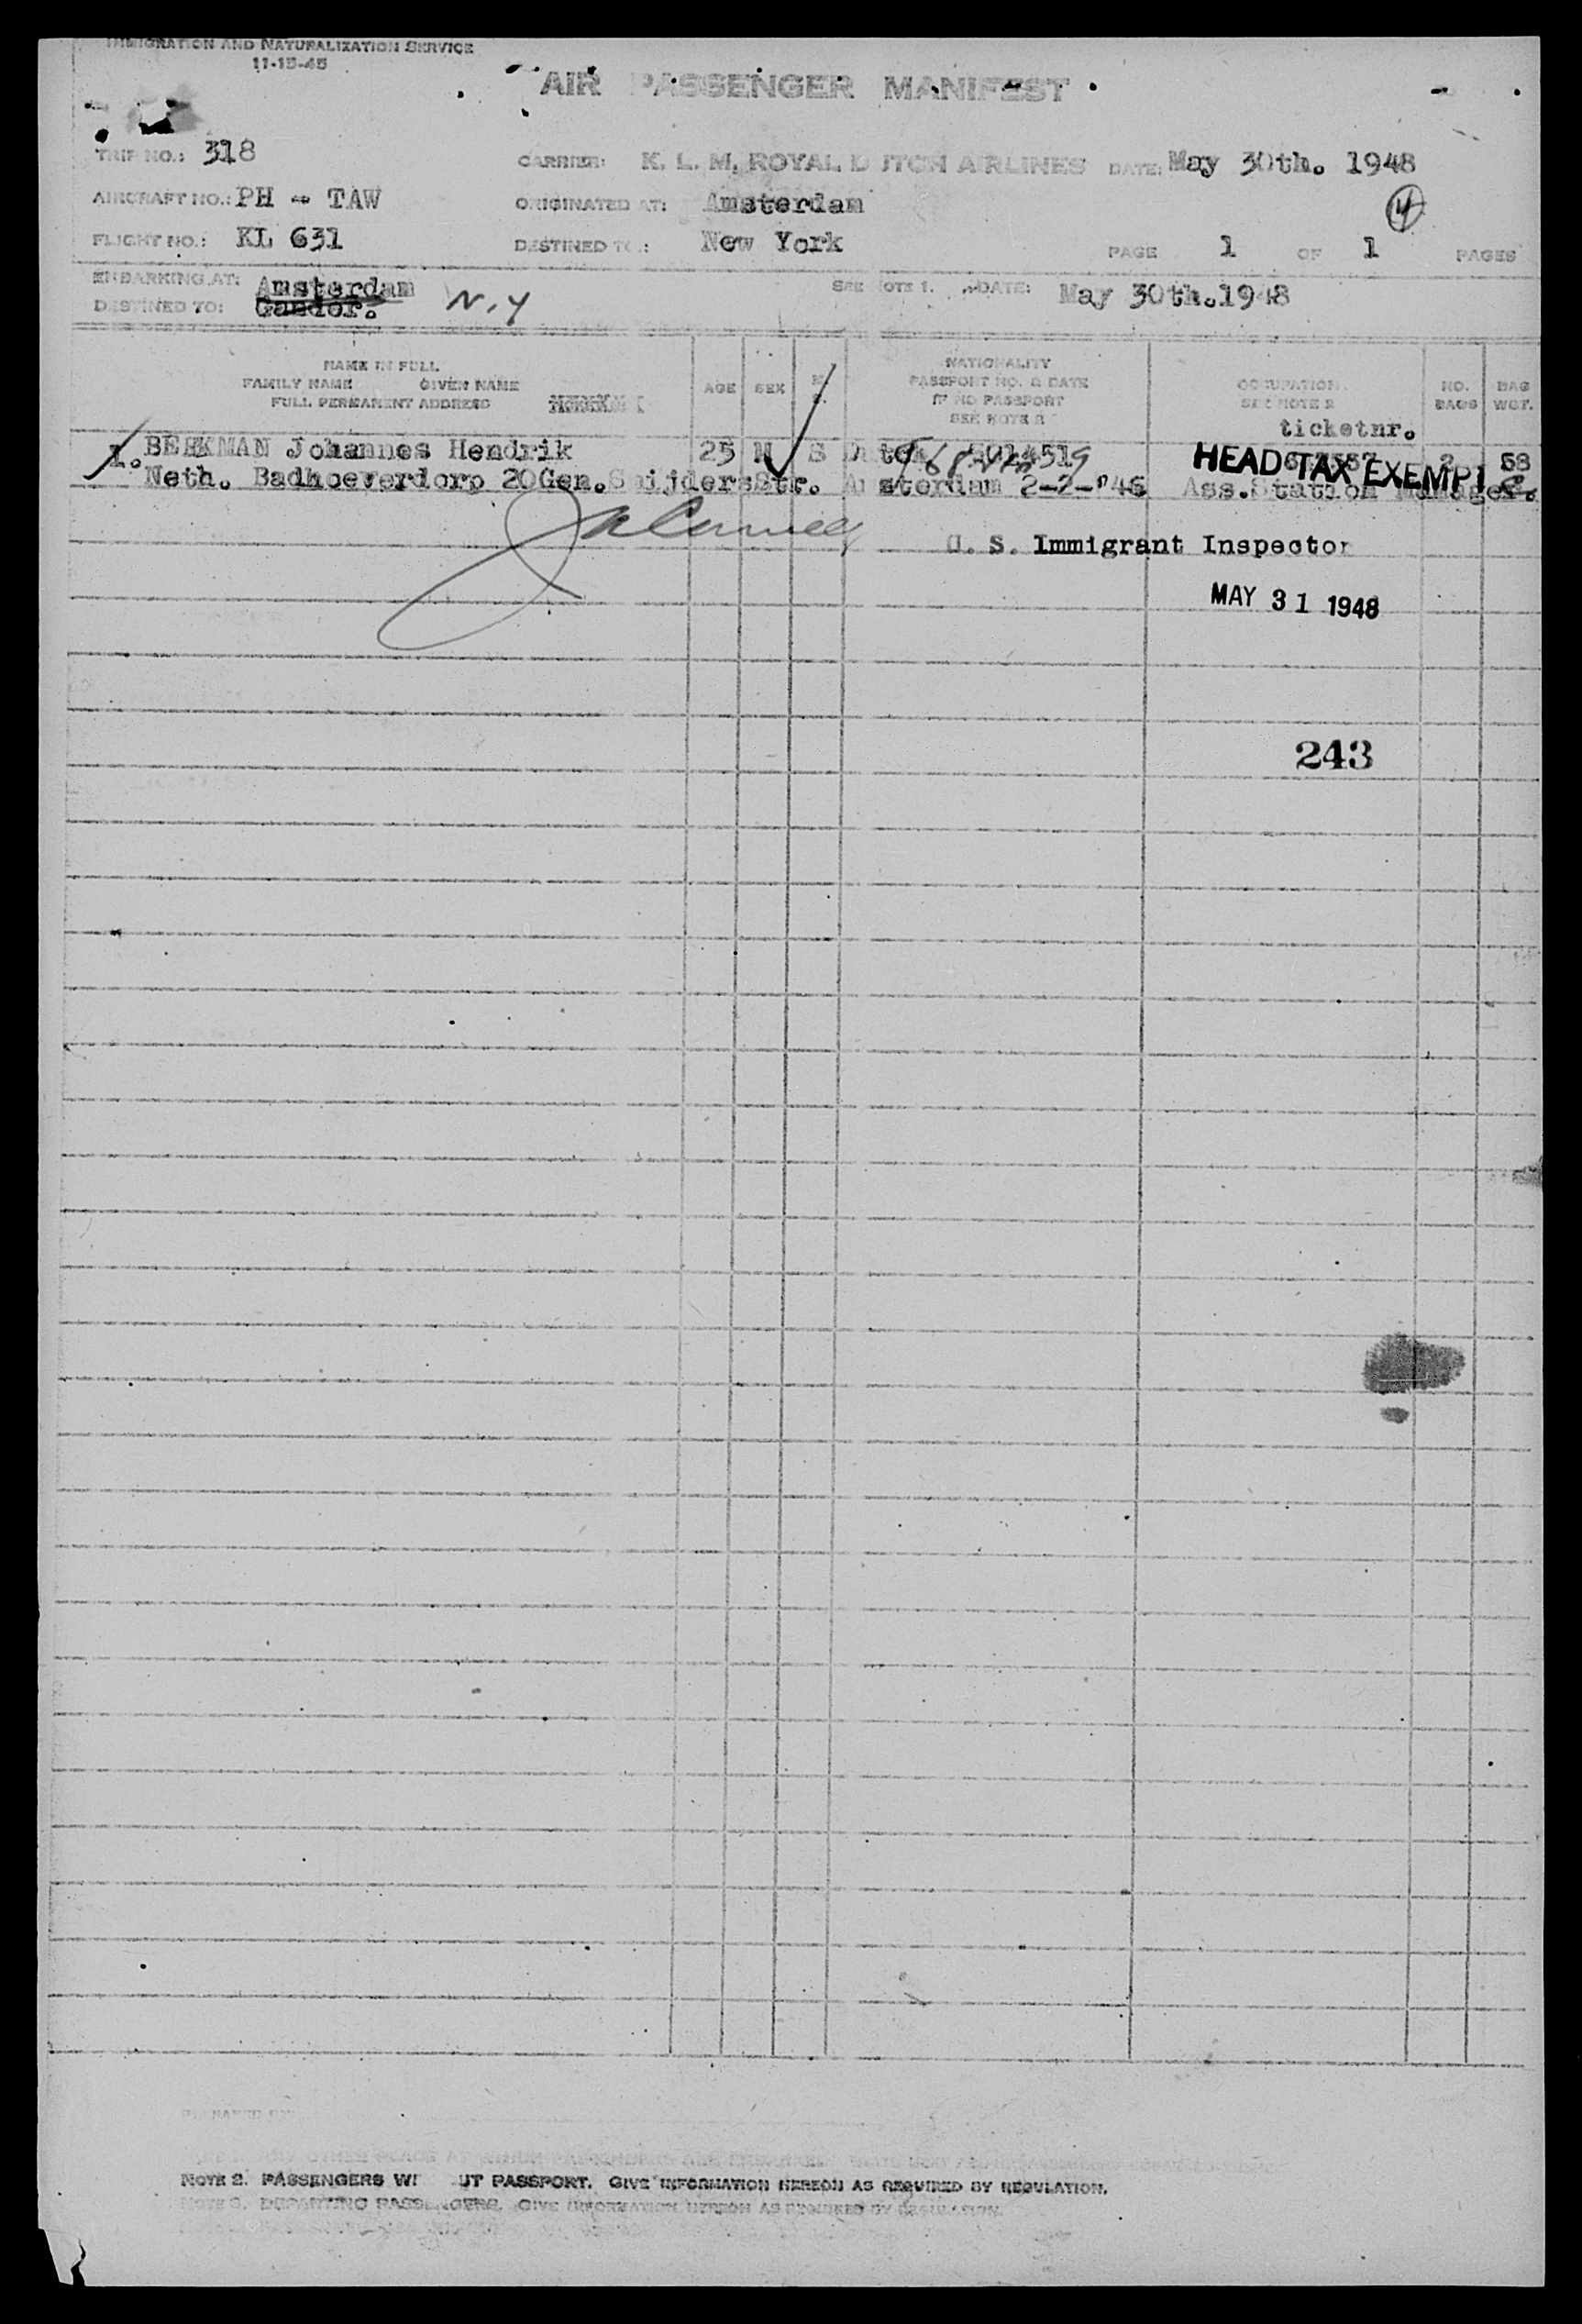 IMMIGRATION AND NATURALIZATION SERVICE
11-15-45
AIR PASSENGER MANIFEST
TRIP NO.: 318 CARRIER: K. L. M. ROYAL DUTCH AIRLINES DATE: May 30th. 1948
AIRCRAFT NO.: PH - TAW ORIGINATED AT: Amsterdam
FLIGHT NO.: KL 631 DESTINED TO: New York PAGE 1 OF 1 PAGES
EMBARKING AT: Amsterdam SEE NOTE 1. DATE: May 30th.1948
DESTINED TO: Gander. N.Y
NAME IN FULL
FAMILY NAME GIVEN NAME
FULL PERMANENT ADDRESS
AGE SEX
NATIONALITY
PASSPORT NO. & DATE
IF NO PASSPORT
SEE NOTE 2
OCCUPATION
SEE NOTE 2
NO. BAGS
BAG WGT.
ticketnr.
1. BEEKMAN Johannes Hendrik 25 M S Dutch 2 58
HEAD TAX EXEMPT
Neth. Badhoeverdorp 20Gen.SnijdersStr. Amsterdam 2-2-'46 Ass.Station Manager.
U. S. Immigrant Inspector
MAY 31 1948
243
NOTE 2. PASSENGERS WITHOUT PASSPORT. GIVE INFORMATION HEREON AS REQUIRED BY REGULATION.
NOTE 3. DEPARTING PASSENGERS. GIVE INFORMATION HEREON AS REQUIRED BY REGULATION.